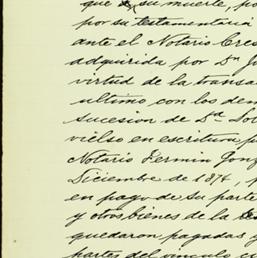 que su muerte, po
por su testamentaria
ante el Notario Cres
adquirida por Dn J
virtud de la transa
ultimo con los dem
sucesion de Da Do
vielso en escritura p
Notario Fermin Gonz
Diciembre de 1874, p
en pago de su parte
y otros bienes de la
quedaron pagadas y
partes del vinculo cu